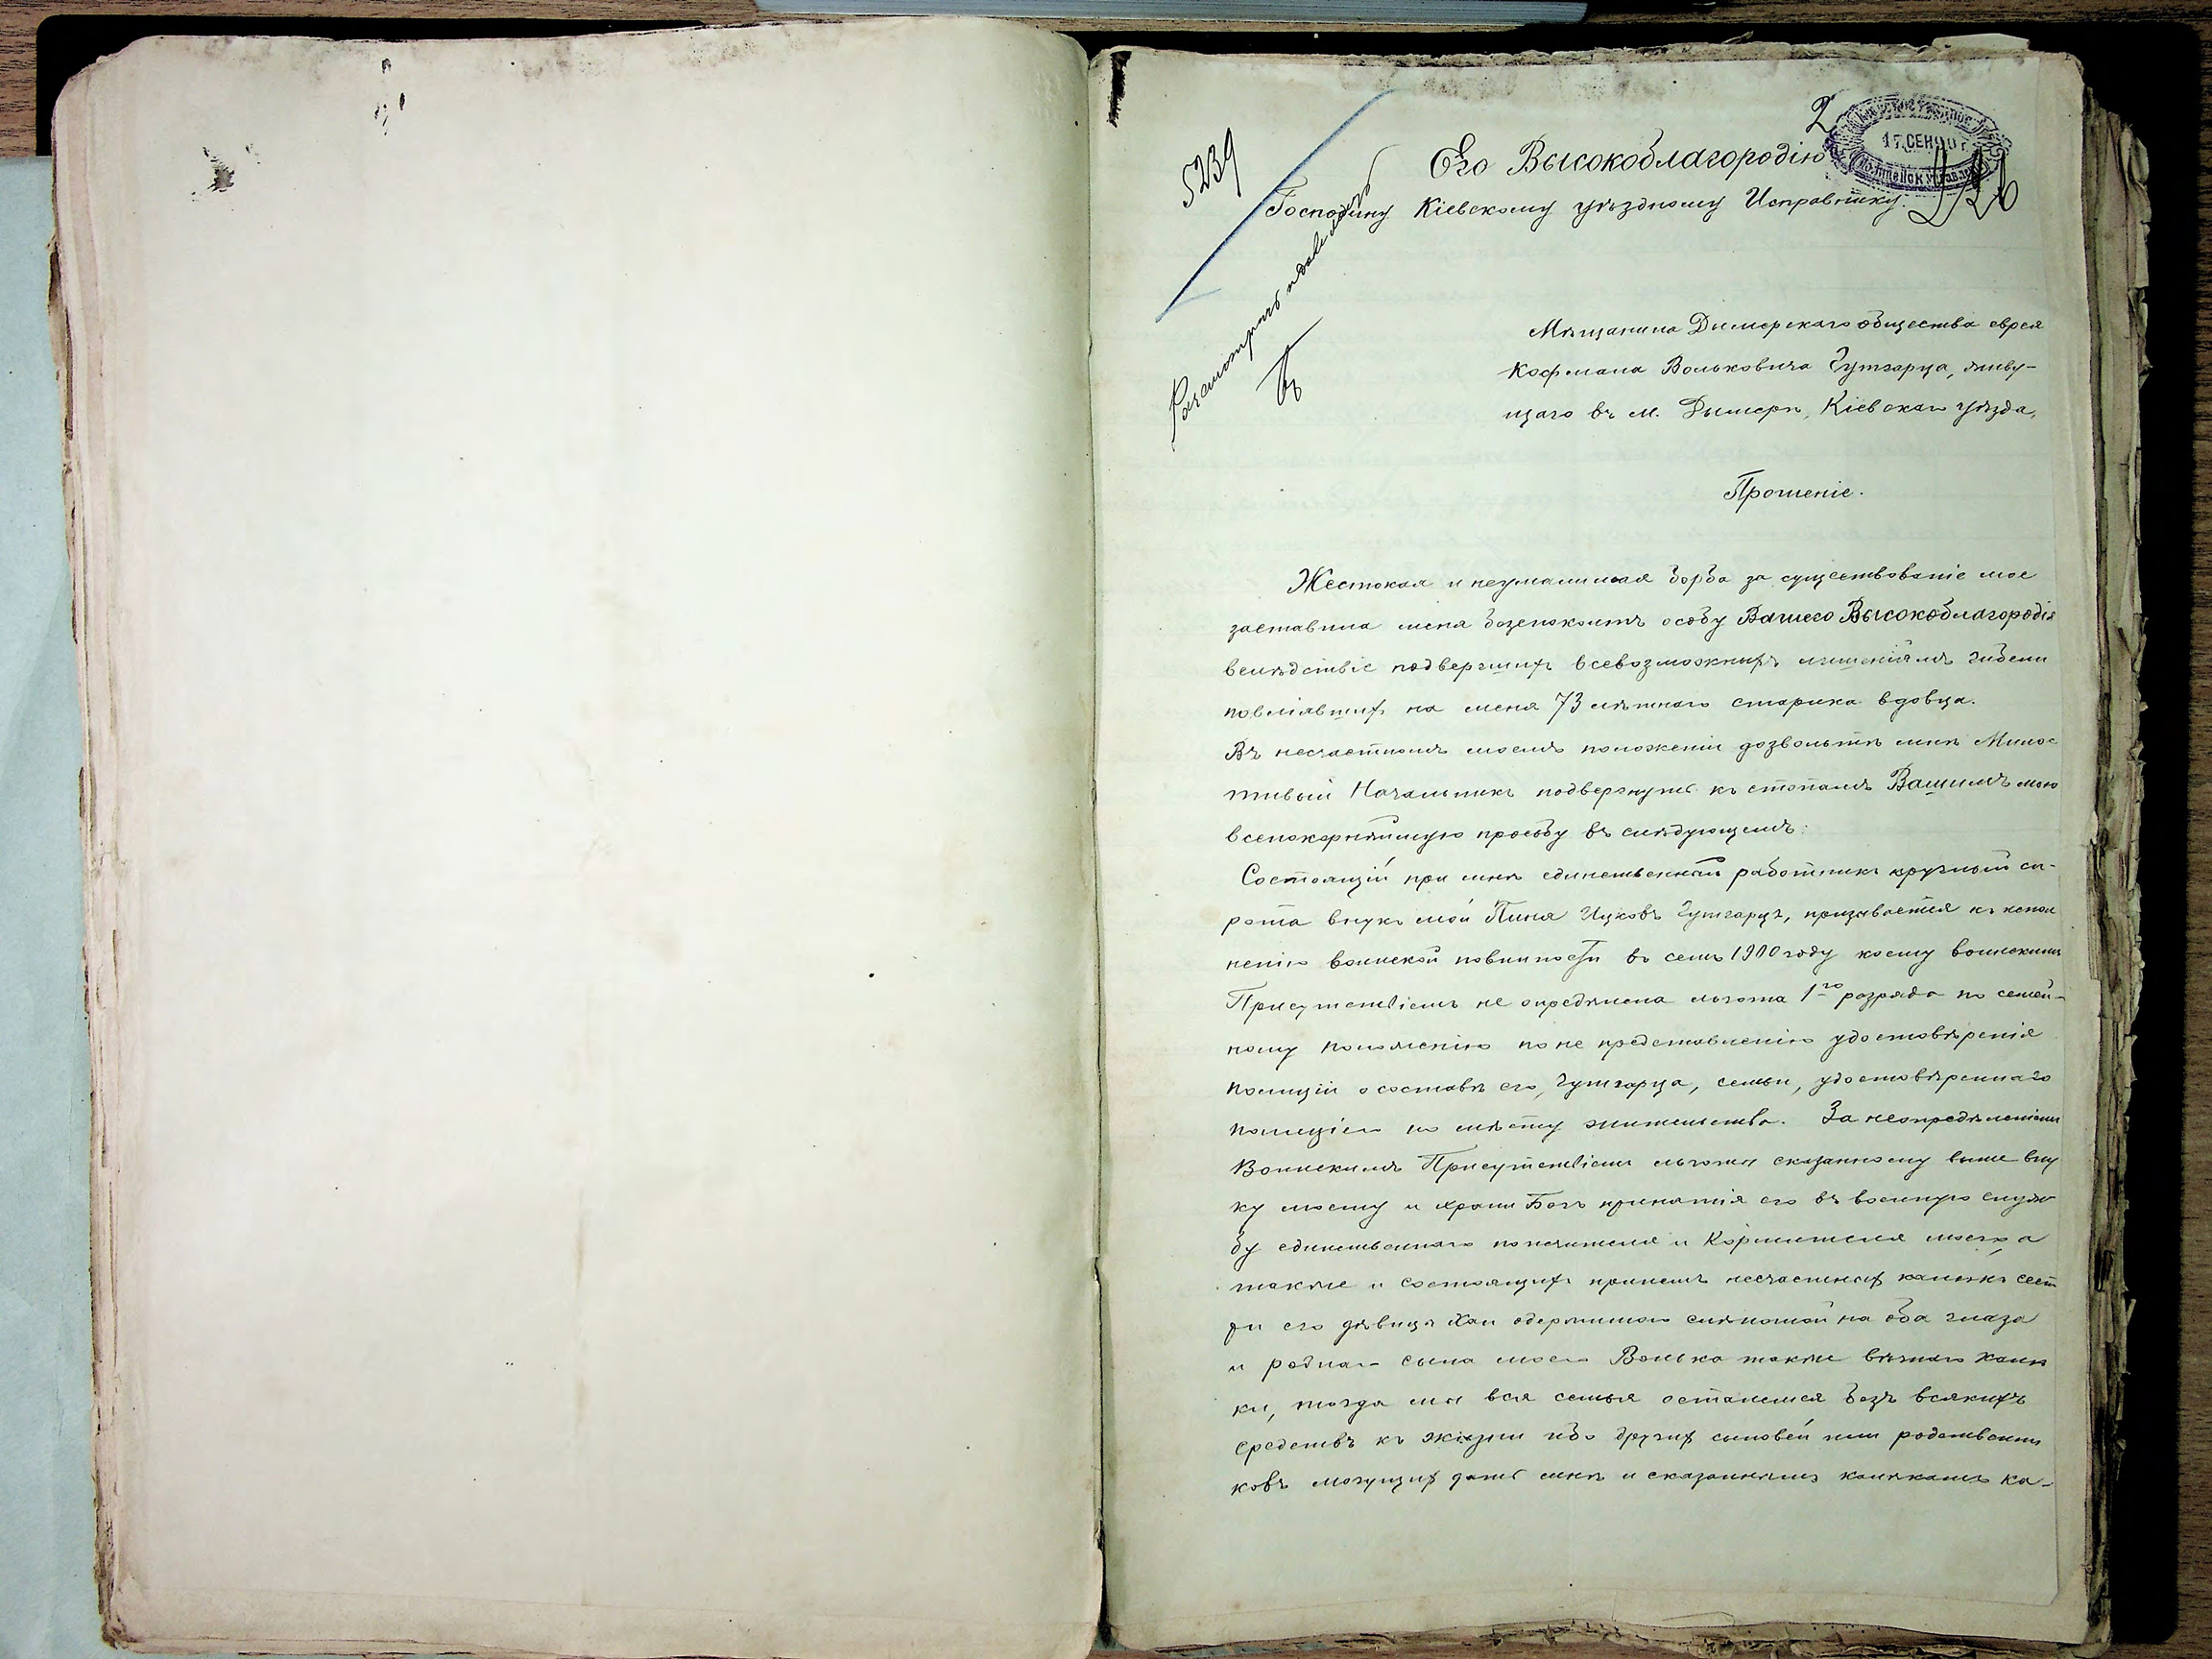 5239
2
17 СЕН 900 г.
Его Высокоблагородію
Господину Кіевскому уѣздному Исправнику.
Мѣщанина Дымерскаго общества еврея
Кофмана Вольковича Гутгарца, живу-
щаго въ м. Дымерѣ, Кіевскаго уѣзда,
Прошеніе.
Жестокая и неумолимая борба за существованіе мое
заставила меня безпокоить особу Вашего Высокоблагородія
вслѣдствіе подвергшихъ всевозможныхъ лишеніямъ гибели
повліявшихъ на меня 73 лѣтняго старика вдовца.
Въ несчастномъ моемъ положеніи дозвольте мнѣ Милос
тивый Начальникъ подвергнуть къ стопамъ Вашимъ мою
всепокорнѣйшую просьбу въ слѣдующемъ:
Состоящій при мнѣ единственный работникъ круглый си-
рота внукъ мой Пиня Ицковъ Гутгарцъ, призывается къ испол
ненію воинской повинности въ семъ 1900 году коему воинскимъ
Присутствіемъ не опредѣлена льгота 1го разряда по семей-
ному положенію по не представленію удостовѣренія
полиціи о составѣ его, Гутгарца, семьи, удостовѣреннаго
полиціею по мѣсту жительства. За неопредѣленіемъ
Воинскимъ Присутствіемъ льготы сказанному выше вну
ку моему и храни Богъ принятія его въ военную служ
бу единственнаго попечителя и Кормителя моего а
также и состоящихъ при немъ несчастныхъ калѣкъ сест
ры его дѣвицы Хаи одержимою слѣпотой на оба глаза
и роднаго сына моего Волька также вѣчнаго калѣ
ки, тогда мы вся семья останемся безъ всякихъ
средствъ къ жизни ибо другихъ сыновей или родственни
ковъ могущихъ дать мнѣ и сказаннымъ калѣкамъ ка-